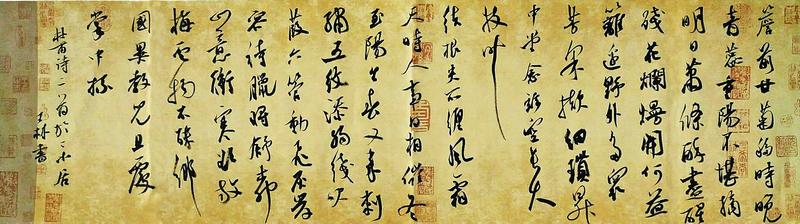 簷前甘菊移時晚
青蕊重陽不堪摘
明日蕭條醉盡醒
殘花爛熳開何益
籬邊野外多眾
芳采擷細瑣昇
中堂念茲空長大
枝叶
結根失所纏風霜
天時人事日相催冬
至陽生春又來刺
繡五紋添弱線吹
葭六管動飛灰岸
容待臘將舒柳
山意衝寒欲放
梅雲物不殊鄉
國異教兒且覆
掌中杯
杜甫诗二首於小居
林書